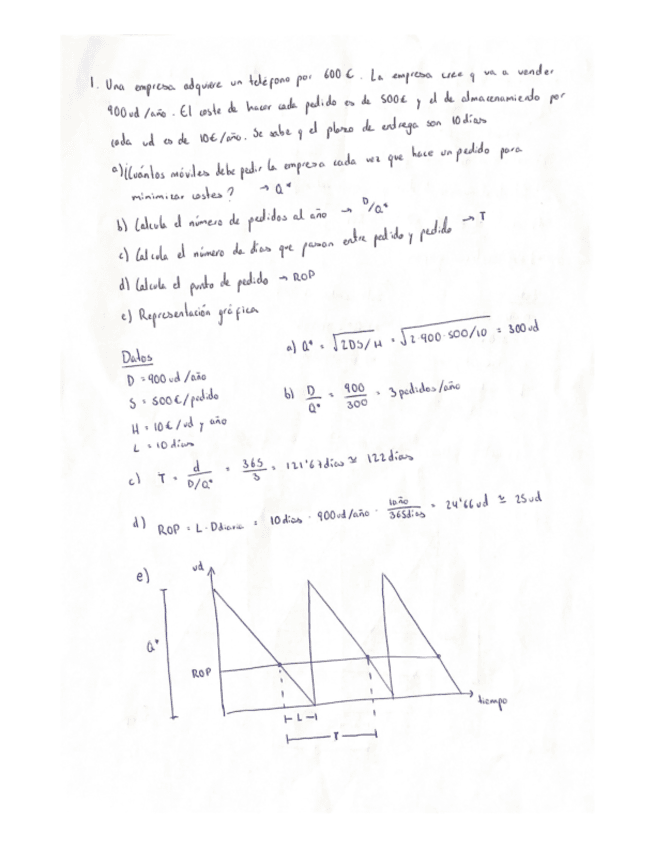 1. Una empresa adquiere un teléfono por 600 €. La empresa cree q va a vender
900 ud/año. El coste de hacer cada pedido es de 500€ y el de almacenamiento por
cada ud es de 10€/año. Se sabe q el plazo de entrega son 10 días
a) ¿Cuántos móviles debe pedir la empresa cada vez que hace un pedido para
minimizar costes? → Q*
b) Calcula el número de pedidos al año → D/Q*
c) Calcula el número de días que pasan entre pedido y pedido → T
d) Calcula el punto de pedido → ROP
e) Representación gráfica
Datos
D = 900 ud/año
S = 500 €/pedido
H = 10 €/ud y año
L = 10 días
a) Q* = √2DS/H = √2·900·500/10 = 300 ud
b) D/Q* = 900/300 = 3 pedidos/año
c) T = d/D/Q* = 365/3 = 121'67 días ≃ 122 días
d) ROP = L · Ddiaria = 10 días · 900 ud/año · 1año/365días = 24'66 ud ≃ 25 ud
e)
ud
Q*
ROP
tiempo
L
T